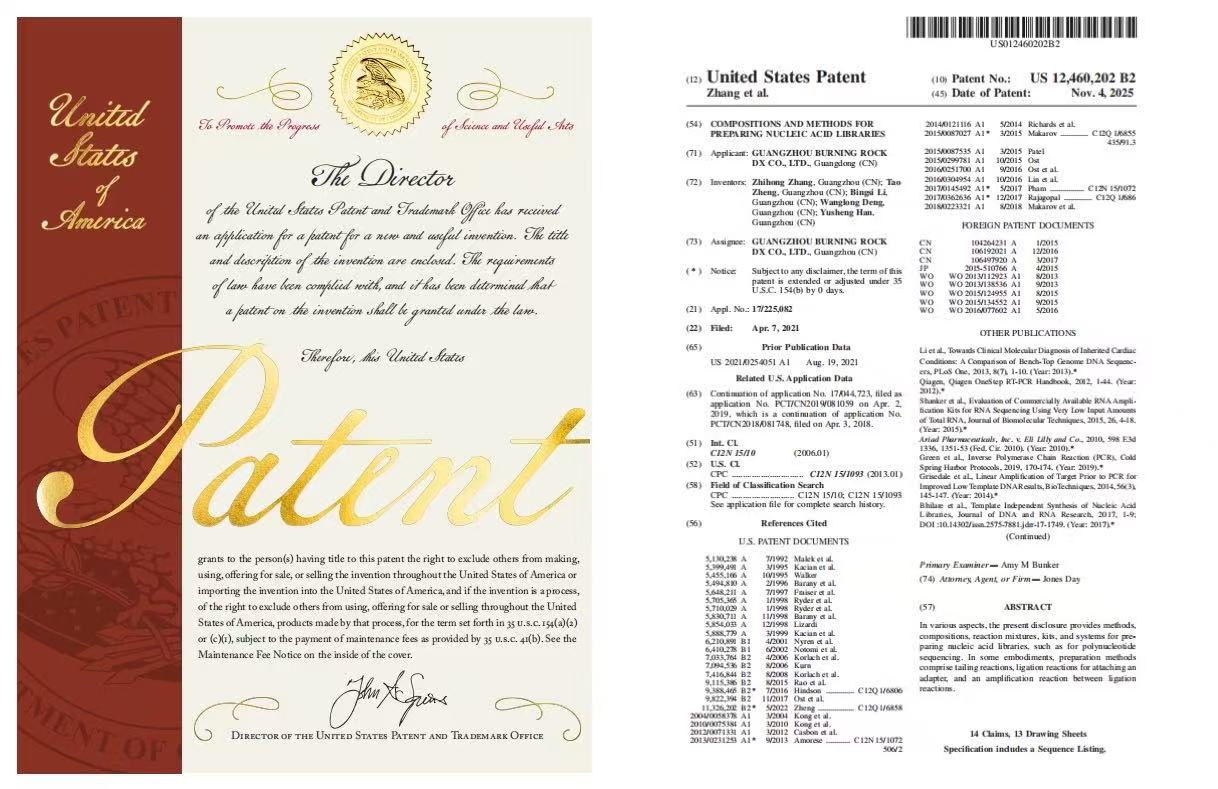 United
States
of
America
To Promote the Progress
of Science and Useful Arts
The Director
of the United States Patent and Trademark Office has received
an application for a patent for a new and useful invention. The title
and description of the invention are enclosed. The requirements
of law have been complied with, and it has been determined that
a patent on the invention shall be granted under the law.
Therefore, this United States
Patent
grants to the person(s) having title to this patent the right to exclude others from making,
using, offering for sale, or selling the invention throughout the United States of America or
importing the invention into the United States of America, and if the invention is a process,
of the right to exclude others from using, offering for sale or selling throughout the United
States of America, products made by that process, for the term set forth in 35 U.S.C. 154(a)(2)
or (c)(1), subject to the payment of maintenance fees as provided by 35 U.S.C. 41(b). See the
Maintenance Fee Notice on the inside of the cover.
DIRECTOR OF THE UNITED STATES PATENT AND TRADEMARK OFFICE
US012460202B2
(12) United States Patent
Zhang et al.
(10) Patent No.: US 12,460,202 B2
(45) Date of Patent: Nov. 4, 2025
(54) COMPOSITIONS AND METHODS FOR
PREPARING NUCLEIC ACID LIBRARIES
(71) Applicant: GUANGZHOU BURNING ROCK
DX CO., LTD., Guangdong (CN)
(72) Inventors: Zhihong Zhang, Guangzhou (CN); Tao
Zheng, Guangzhou (CN); Bingsi Li,
Guangzhou (CN); Wanglong Deng,
Guangzhou (CN); Yusheng Han,
Guangzhou (CN)
(73) Assignee: GUANGZHOU BURNING ROCK
DX CO., LTD., Guangzhou (CN)
(*) Notice: Subject to any disclaimer, the term of this
patent is extended or adjusted under 35
U.S.C. 154(b) by 0 days.
(21) Appl. No.: 17/225,082
(22) Filed: Apr. 7, 2021
(65) Prior Publication Data
US 2021/0254051 A1 Aug. 19, 2021
Related U.S. Application Data
(63) Continuation of application No. 17/044,723, filed as
application No. PCT/CN2019/081059 on Apr. 2,
2019, which is a continuation of application No.
PCT/CN2018/081748, filed on Apr. 3, 2018.
(51) Int. Cl.
C12N 15/10 (2006.01)
(52) U.S. Cl.
CPC .................................. C12N 15/1093 (2013.01)
(58) Field of Classification Search
CPC ............................ C12N 15/10; C12N 15/1093
See application file for complete search history.
(56) References Cited
U.S. PATENT DOCUMENTS
5,130,238 A 7/1992 Malek et al.
5,399,491 A 3/1995 Kacian et al.
5,455,166 A 10/1995 Walker
5,494,810 A 2/1996 Barany et al.
5,648,211 A 7/1997 Fraiser et al.
5,705,365 A 1/1998 Ryder et al.
5,710,029 A 1/1998 Ryder et al.
5,830,711 A 11/1998 Barany et al.
5,854,033 A 12/1998 Lizardi
5,888,779 A 3/1999 Kacian et al.
6,210,891 B1 4/2001 Nyren et al.
6,410,278 B1 6/2002 Notomi et al.
7,033,764 B2 4/2006 Korlach et al.
7,094,536 B2 8/2006 Kurn
7,416,844 B2 8/2008 Korlach et al.
9,115,386 B2 8/2015 Rao et al.
9,388,465 B2* 7/2016 Hindson .............. C12Q 1/6806
9,822,394 B2 11/2017 Ost et al.
11,326,202 B2* 5/2022 Zheng .................. C12Q 1/6858
2004/0058378 A1 3/2004 Kong et al.
2010/0075384 A1 3/2010 Kong et al.
2012/0071331 A1 3/2012 Casbon et al.
2013/0231253 A1* 9/2013 Amorese .............. C12N 15/1072
506/2
2014/0121116 A1 5/2014 Richards et al.
2015/0087027 A1* 3/2015 Makarov .............. C12Q 1/6855
435/91.3
2015/0087535 A1 3/2015 Patel
2015/0299781 A1 10/2015 Ost
2016/0251700 A1 9/2016 Ost et al.
2016/0304954 A1 10/2016 Lin et al.
2017/0145492 A1* 5/2017 Pham .................. C12N 15/1072
2017/0362636 A1* 12/2017 Rajagopal .............. C12Q 1/686
2018/0223321 A1 8/2018 Makarov et al.
FOREIGN PATENT DOCUMENTS
CN 104264231 A 1/2015
CN 106192021 A 12/2016
CN 106497920 A 3/2017
JP 2015-510766 A 4/2015
WO WO 2013/112923 A1 8/2013
WO WO 2013/138536 A1 9/2013
WO WO 2015/124955 A1 8/2015
WO WO 2015/134552 A1 9/2015
WO WO 2016/077602 A1 5/2016
OTHER PUBLICATIONS
Li et al., Towards Clinical Molecular Diagnosis of Inherited Cardiac
Conditions: A Comparison of Bench-Top Genome DNA Sequenc-
ers, PLoS One, 2013, 8(7), 1-10. (Year: 2013).*
Qiagen, Qiagen OneStep RT-PCR Handbook, 2012, 1-44. (Year:
2012).*
Shanker et al., Evaluation of Commercially Available RNA Ampli-
fication Kits for RNA Sequencing Using Very Low Input Amounts
of Total RNA, Journal of Biomolecular Techniques, 2015, 26, 4-18.
(Year: 2015).*
Ariad Pharmaceuticals, Inc. v. Eli Lilly and Co., 2010, 598 F.3d
1336, 1351-53 (Fed. Cir. 2010). (Year: 2010).*
Green et al., Inverse Polymerase Chain Reaction (PCR), Cold
Spring Harbor Protocols, 2019, 170-174. (Year: 2019).*
Grisedale et al., Linear Amplification of Target Prior to PCR for
Improved Low Template DNA Results, BioTechniques, 2014, 56(3),
145-147. (Year: 2014).*
Bhilare et al., Template Independent Synthesis of Nucleic Acid
Libraries, Journal of DNA and RNA Research, 2017, 1-9;
DOI:10.14302/issn.2575-7881.jdrr-17-1749. (Year: 2017).*
(Continued)
Primary Examiner — Amy M Bunker
(74) Attorney, Agent, or Firm — Jones Day
(57) ABSTRACT
In various aspects, the present disclosure provides methods,
compositions, reaction mixtures, kits, and systems for pre-
paring nucleic acid libraries, such as for polynucleotide
sequencing. In some embodiments, preparation methods
comprise tailing reactions, ligation reactions for attaching an
adapter, and an amplification reaction between ligation
reactions.
14 Claims, 13 Drawing Sheets
Specification includes a Sequence Listing.